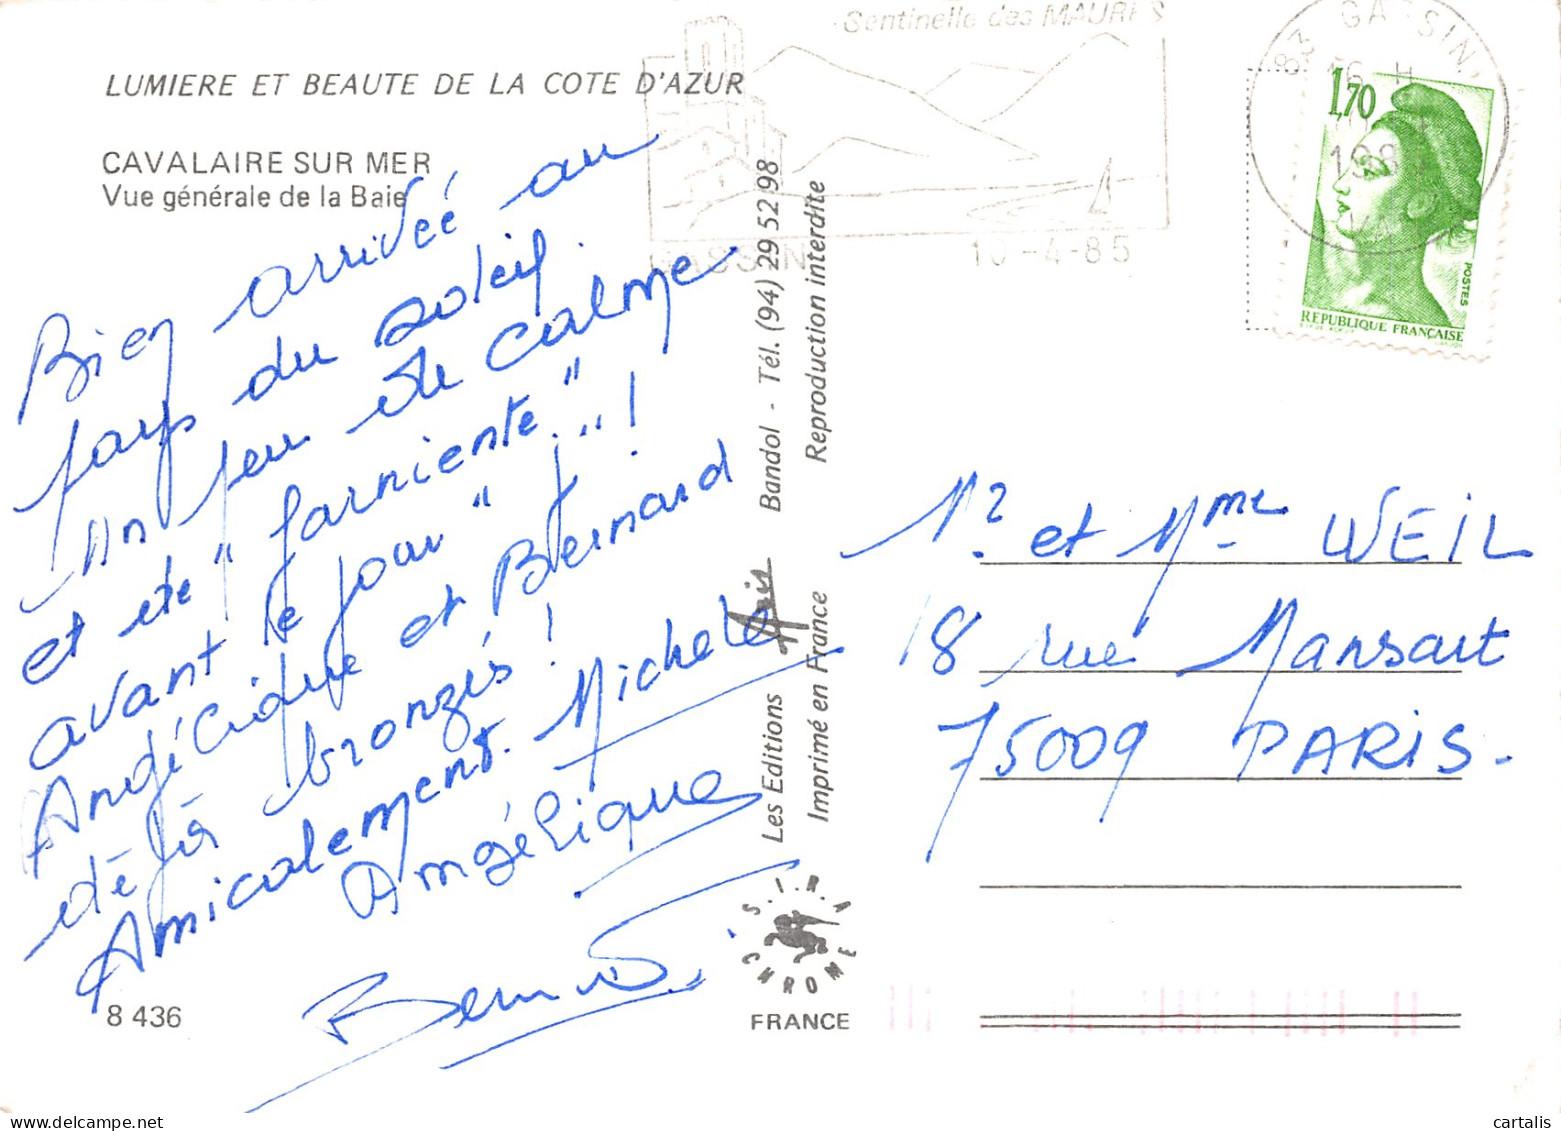 LUMIERE ET BEAUTE DE LA COTE D'AZUR
CAVALAIRE SUR MER
Vue générale de la Baie
Bien arrivée au
pays du soleil.
Un peu de calme
et de "farniente"
avant le jour "J"..!
Angélique et Bernard
déjà bronzés !
Amicalement. Michele
Angélique
Bernard
8 436
Sentinelle des MAURES
GASSIN
10-4-85
83 GASSIN
16 H
1,70
POSTES
REPUBLIQUE FRANÇAISE
Les Editions Aris Bandol - Tél. (94) 29 52 98
Imprimé en France Reproduction interdite
S.I.R.A
CHROME
FRANCE
Mr. et Mme WEIL
18 rue Mansart
75009 PARIS.
cartalis
delcampe.net